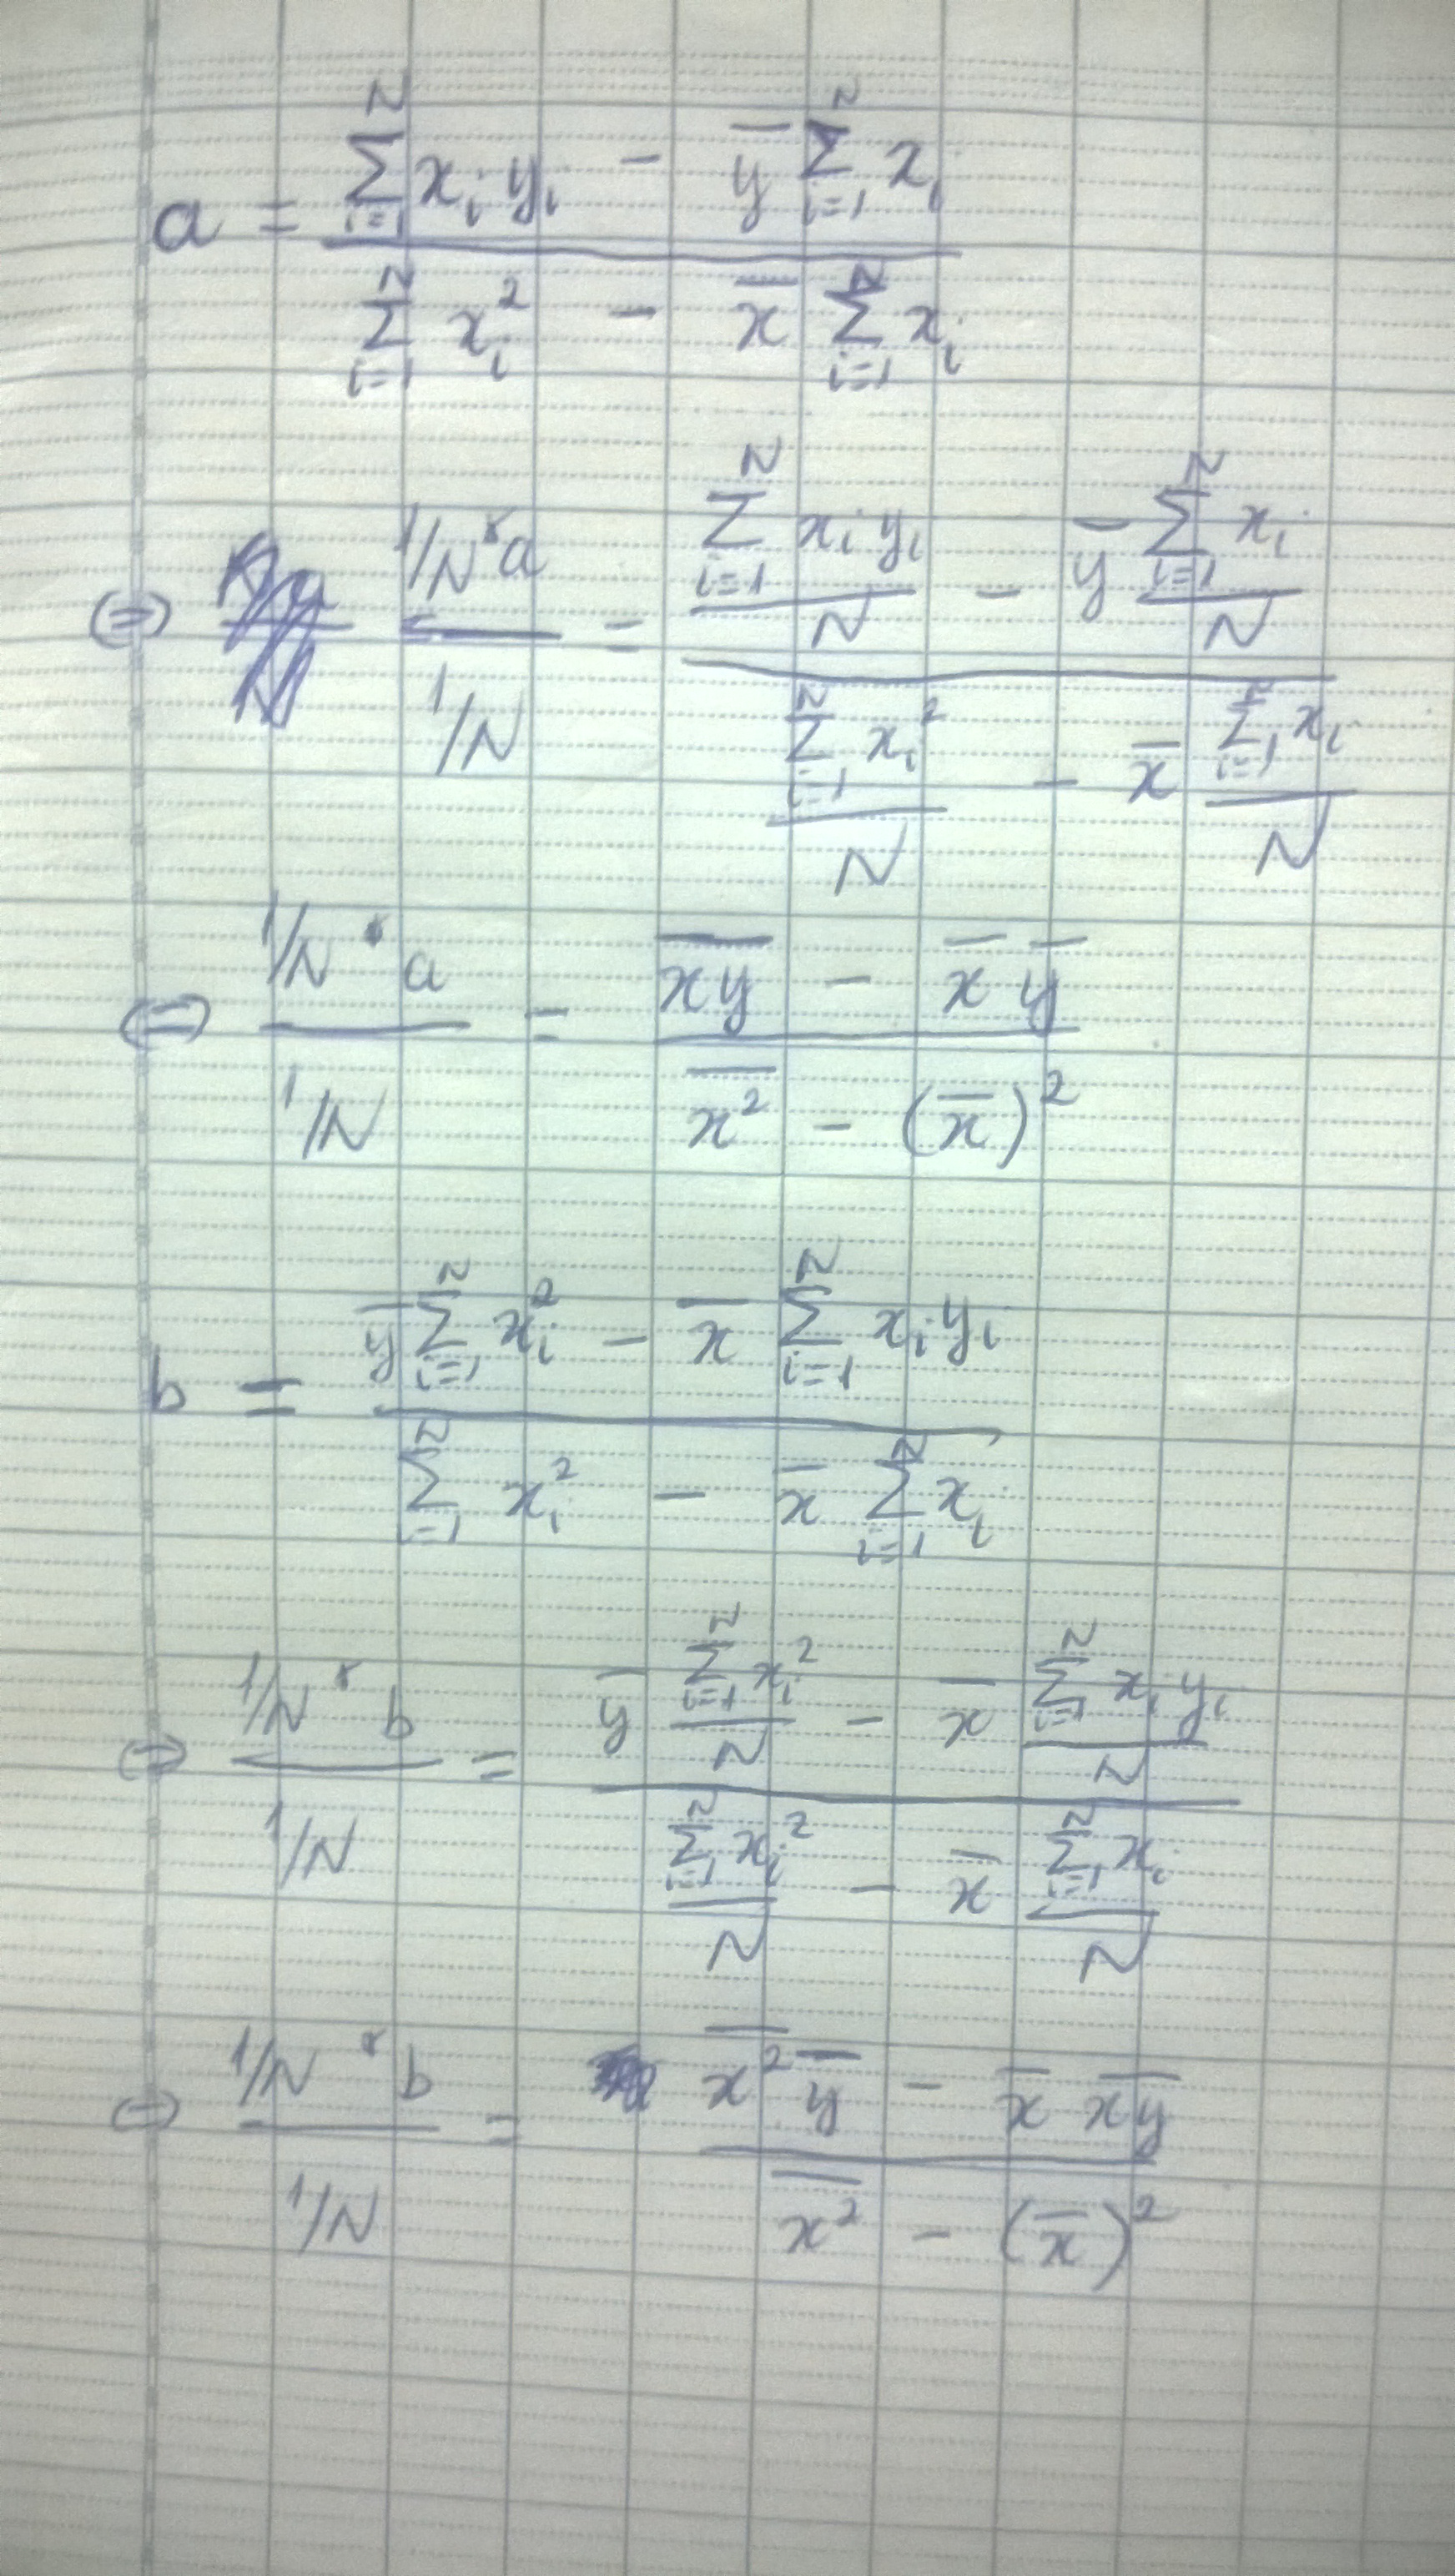 a = \frac{\sum_{i=1}^{N} x_i y_i - \overline{y} \sum_{i=1}^{N} x_i}{\sum_{i=1}^{N} x_i^2 - \overline{x} \sum_{i=1}^{N} x_i}
\Leftrightarrow \frac{1/N * a}{1/N} = \frac{\frac{\sum_{i=1}^{N} x_i y_i}{N} - \overline{y} \frac{\sum_{i=1}^{N} x_i}{N}}{\frac{\sum_{i=1}^{N} x_i^2}{N} - \overline{x} \frac{\sum_{i=1}^{N} x_i}{N}}
\Leftrightarrow \frac{1/N * a}{1/N} = \frac{\overline{xy} - \overline{x} \, \overline{y}}{\overline{x^2} - (\overline{x})^2}
b = \frac{\overline{y} \sum_{i=1}^{N} x_i^2 - \overline{x} \sum_{i=1}^{N} x_i y_i}{\sum_{i=1}^{N} x_i^2 - \overline{x} \sum_{i=1}^{N} x_i}
\Leftrightarrow \frac{1/N * b}{1/N} = \frac{\overline{y} \frac{\sum_{i=1}^{N} x_i^2}{N} - \overline{x} \frac{\sum_{i=1}^{N} x_i y_i}{N}}{\frac{\sum_{i=1}^{N} x_i^2}{N} - \overline{x} \frac{\sum_{i=1}^{N} x_i}{N}}
\Leftrightarrow \frac{1/N * b}{1/N} = \frac{\overline{x^2} \, \overline{y} - \overline{x} \, \overline{xy}}{\overline{x^2} - (\overline{x})^2}